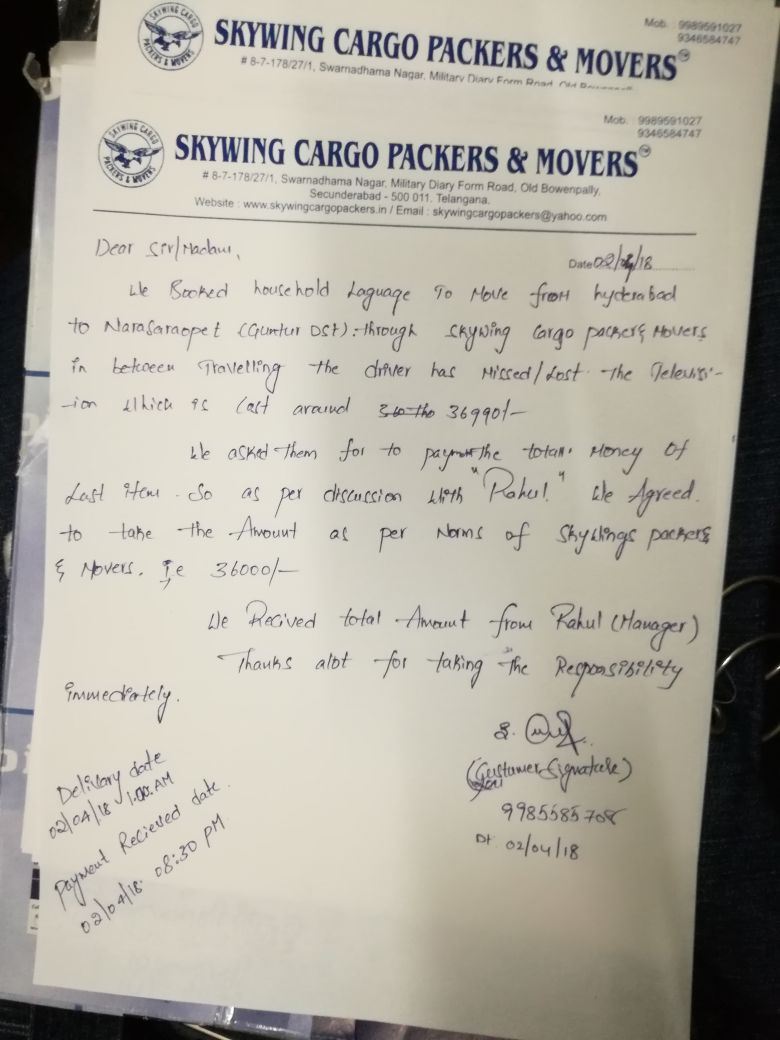 SKYWING CARGO
PACKERS & MOVERS
Mob. : 9989591027
9346584747
SKYWING CARGO PACKERS & MOVERS
# 8-7-178/27/1, Swarnadhama Nagar, Military Diary Form Road, Old Bowenpally,
Mob. : 9989591027
9346584747
SKYWING CARGO
PACKERS & MOVERS
SKYWING CARGO PACKERS & MOVERS
# 8-7-178/27/1, Swarnadhama Nagar, Military Diary Form Road, Old Bowenpally,
Secunderabad - 500 011. Telangana.
Website : www.skywingcargopackers.in / Email : skywingcargopackers@yahoo.com
Dear Sir/Madam,
Date 02/04/18
We Booked household Laguage To Move from hyderabad
to Narasaraopet (Guntur Dst). through skywing Cargo packers & Movers
in between Travelling the driver has Missed/Lost the Televisi-
-ion Which is Cost around 36990/-
We asked them for to pay the total Money of
Lost item. So as per discussion with "Rahul" We Agreed.
to take the Amount as per Norms of Skywings packers
& Movers. i.e 36000/-
We Recived total Amount from Rahul (Manager)
Thanks alot for taking the Responsibility
immediately.
(Customer Signature)
9985585708
Dt 02/04/18
Delivary date
02/04/18 1:00.AM
Payment Recieved date.
02/04/18. 08:30 PM